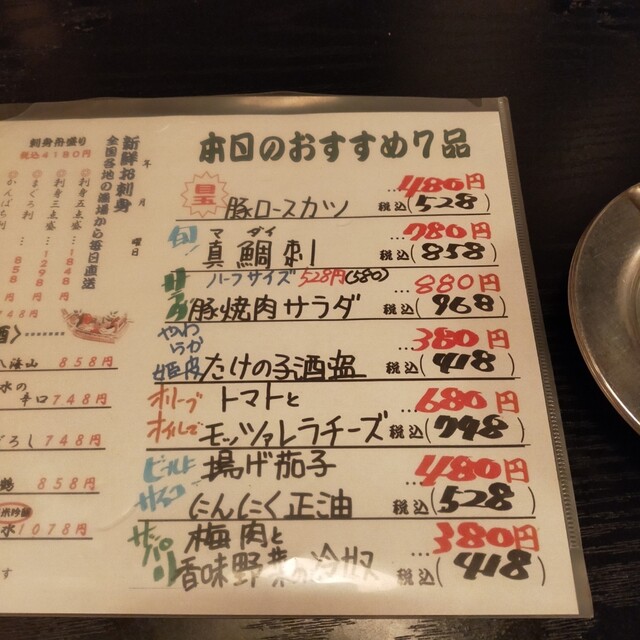 本日のおすすめ7品
目玉
豚ロースカツ
...480円
税込(528)
旬!
マダイ
真鯛刺
...780円
税込(858)
ハーフサイズ 528円(580)
豚焼肉サラダ
...880円
税込(968)
やわらか
姫皮
たけの子酒塩
...380円
税込(418)
オリーブオイルで
トマトと
モッツァレラチーズ
...680円
税込(748)
ビールにサイコー
揚げ茄子
にんにく正油
...480円
税込(528)
サッパリ
梅肉と
香味野菜の冷奴
...380円
税込(418)
新鮮お刺身
全国各地の漁場から毎日直送
年 月 曜日
刺身舟盛り
税込4180円
◎刺身五点盛…1848円
◎刺身三点盛…1298円
◎まぐろ刺
858円
◎かんぱち刺
748円
八海山 858円
水の
辛口 748円
748円
鶴 858円
水 1078円